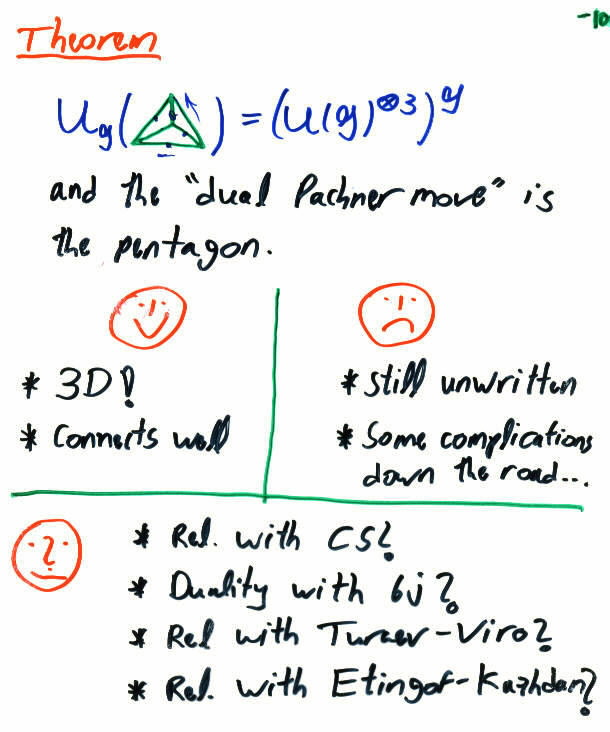 -10
Theorem
U_g( ) = (U(g)^{⊗3})^g
and the "dual Pachner move" is
the pentagon.
* 3D!
* Connects well
* Still unwritten
* Some complications
down the road...
* Rel. with CS?
* Duality with 6j?
* Rel with Turaev-Viro?
* Rel. with Etingof-Kazhdan?